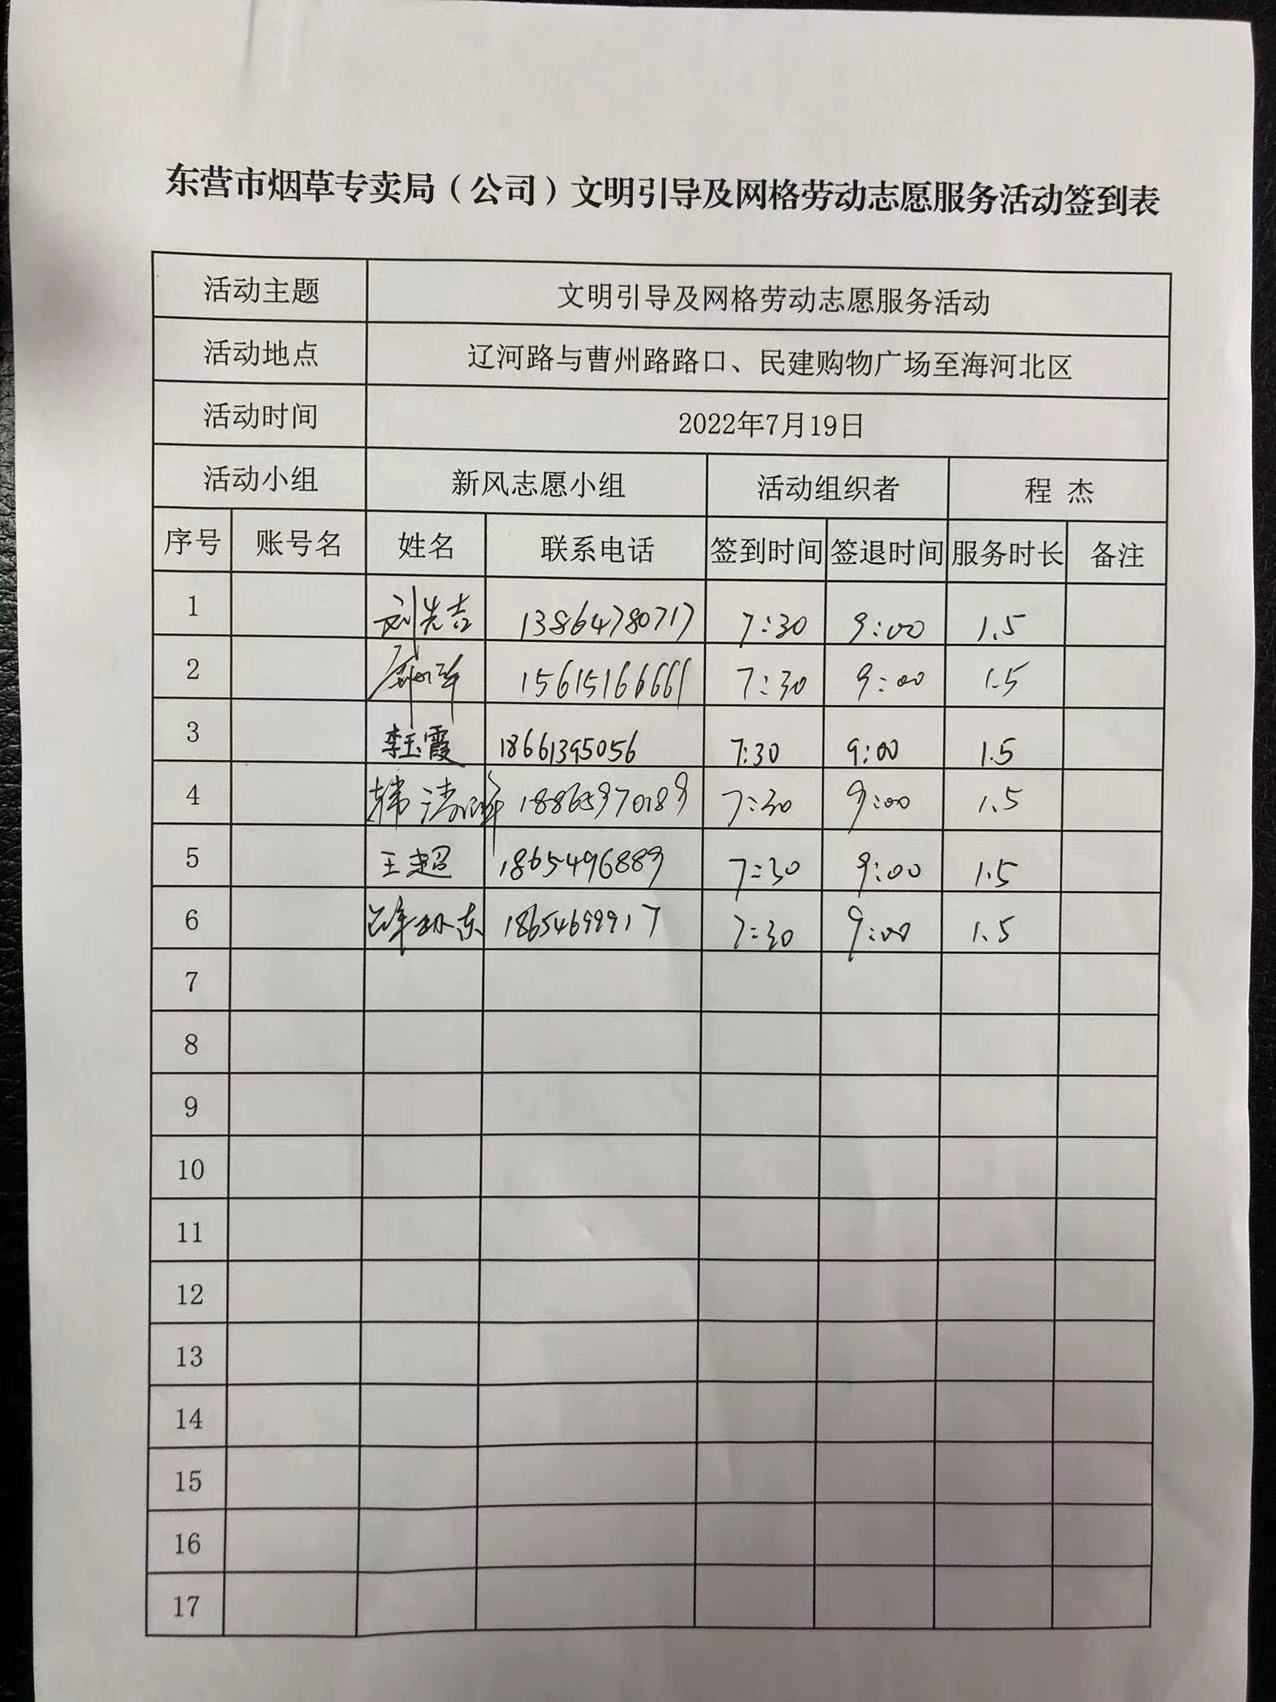 东营市烟草专卖局（公司）文明引导及网格劳动志愿服务活动签到表
活动主题 文明引导及网格劳动志愿服务活动
活动地点 辽河路与曹州路路口、民建购物广场至海河北区
活动时间 2022年7月19日
活动小组 新风志愿小组 活动组织者 程 杰
序号 账号名 姓名 联系电话 签到时间 签退时间 服务时长 备注
1 刘先吉 13864780717 7:30 9:00 1.5
2 15615166661 7:30 9:00 1.5
3 李玉霞 18661395056 7:30 9:00 1.5
4 韩涛峰 18865970189 7:30 9:00 1.5
5 王超 1865496889 7:30 9:00 1.5
6 18654699917 7:30 9:00 1.5
7
8
9
10
11
12
13
14
15
16
17